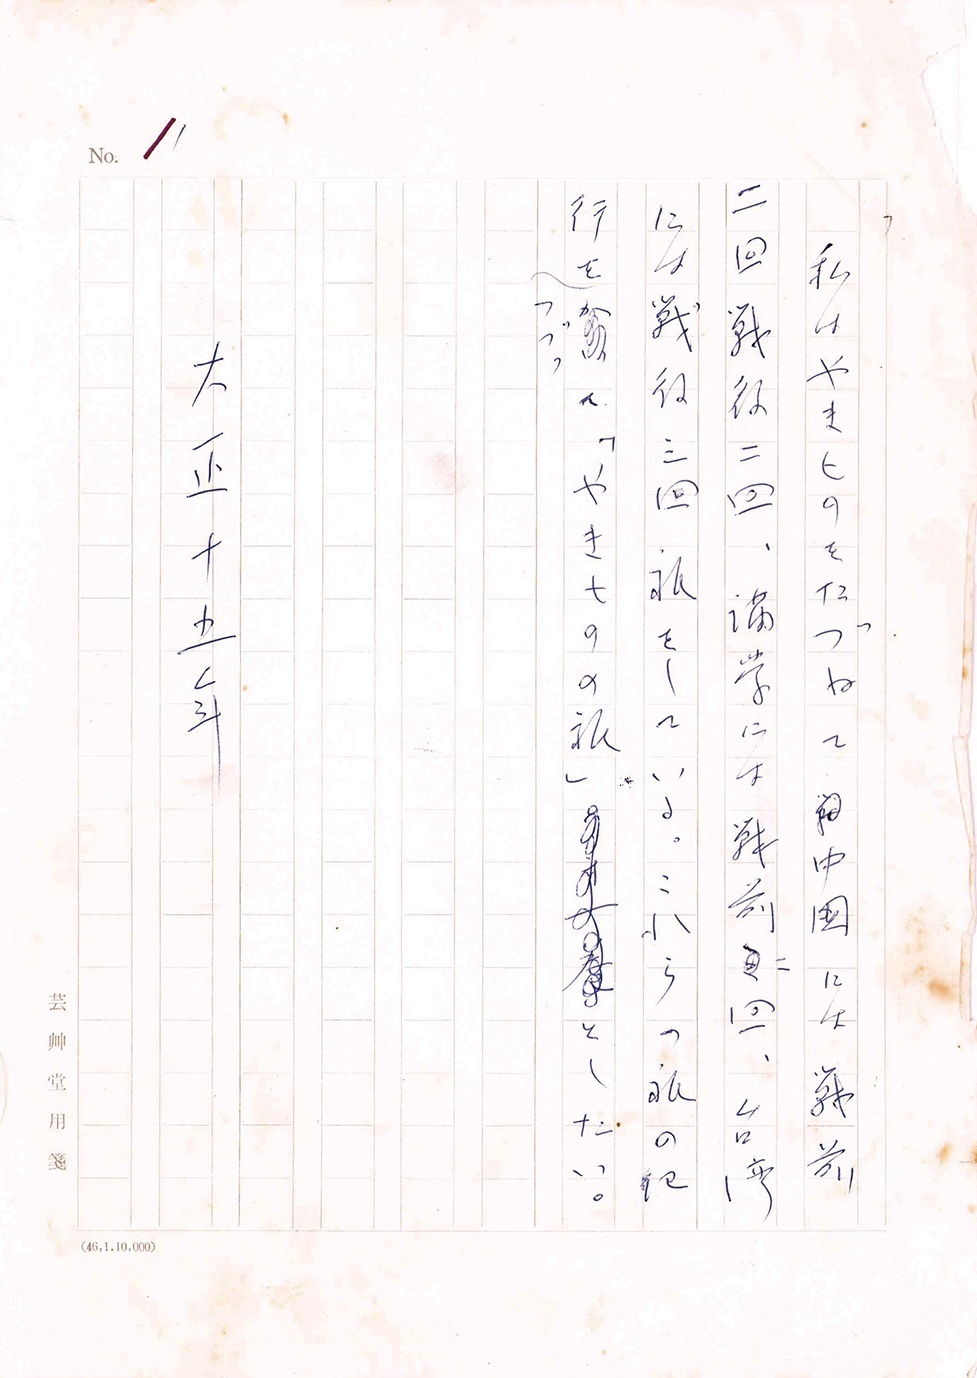 No. 11
私はやきものをたづねて中國には戦前
二回戦後二回、満学には戦前二回、台湾
には戦後三回旅をしている。これらの旅の紀
行をつづって「やきものの旅」としたい。
大正十五年
芸艸堂用箋
(46,1.10,000)